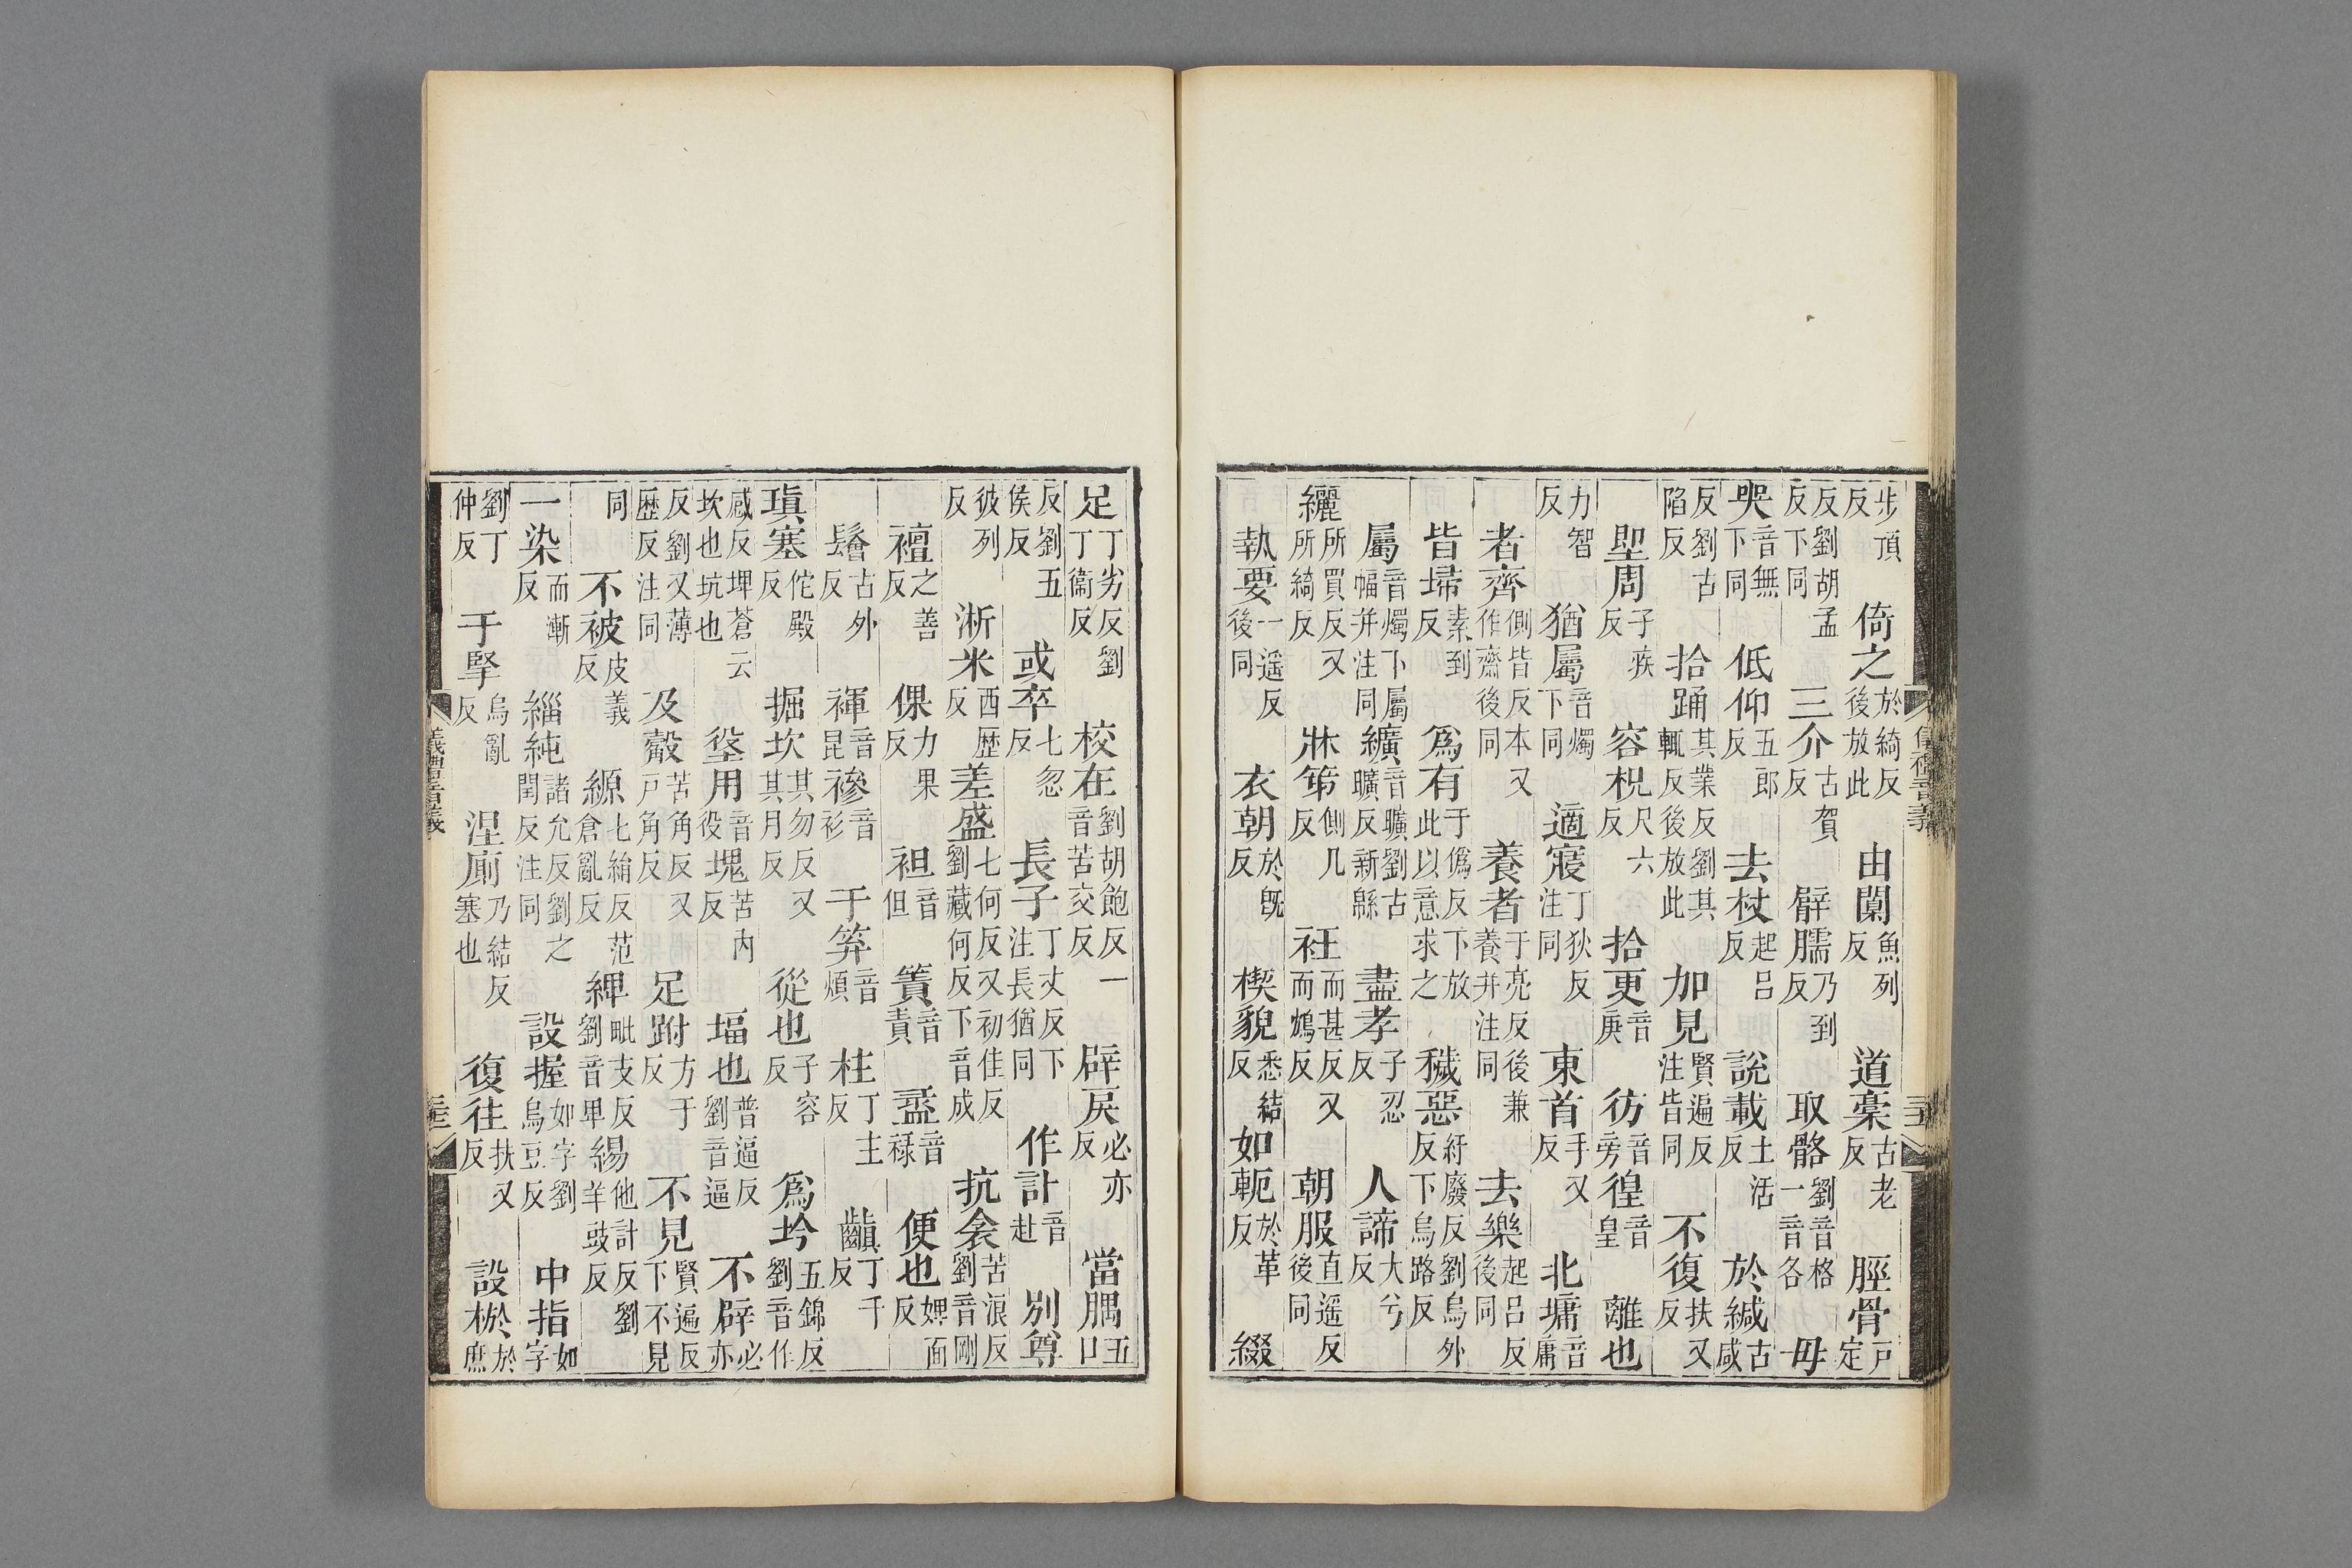 儀禮音義
步頂反 倚之於綺反後放此 由闑魚列反 道稾古老反 脛骨戶定
反劉胡孟反下同 三介古賀反 臂臑乃到反 取骼劉音格一音各 毋
哭音無下同 低仰五郎反 去杖起呂反 說載土活反 於緘古咸
反劉古陷反 拾踊其業反劉其輒反後放此 加見賢遍反注皆同 不復扶又反
聖周子疾反 容柷尺六反 拾更音庚 彷音旁徨音皇 離也
力智反 猶屬音燭下同 適寢丁狄反注同 東首手又反 北墉音庸
者齊側皆反本又作齋後同 養者于亮反後兼養并注同 去樂起呂反後同
皆埽素到反 爲有于僞反下放此以意求之 穢惡紆廢反劉烏外反下烏路反
屬音燭下屬幅并注同 纊音曠劉古曠反新緜 盡孝子忍反 人諦大兮反
纚所買反又所綺反 牀第側几反 衽而甚反又而鴆反 朝服直遥反後同
執要一遥反後同 衣朝於既反 楔貌悉結反 如軛於革反 綴
足丁劣反劉丁衞反 校在劉胡飽反一音苦交反 辟戾必亦反 當腢五口
反劉五侯反 或卒七忽反 長子丁丈反下注長猶同 作計音赴 別尊
彼列反 淅米西歷反 差盛七何反又初佳反劉藏何反下音成 抗衾苦浪反劉音剛
襢之善反 倮力果反 袒音但 簀音責 盝音祿 便也婢面反
鬠古外反 褌音昆 襂音衫 于笲音煩 柱丁主反 齻丁千反
瑱塞佗殿反 掘坎其勿反又其月反 從也子容反 爲坅五錦反劉音作
感反埤蒼云坎也坑也 垼用音役 塊苦內反 堛也普逼反劉音逼 不辟必亦
反劉又薄歷反注同 及觳苦角反又戶角反 足跗方于反 不見賢遍反下不見
同 不被皮義反 縓七絹反范倉亂反 綼毗支反劉音卑 緆他計反劉羊豉反
一染而漸反 緇純諸允反劉之閏反注同 設握如字劉烏豆反 中指如字
劉丁仲反 于掔烏亂反 涅廁乃結反塞也 復往扶又反 設棜於庶
儀禮音義